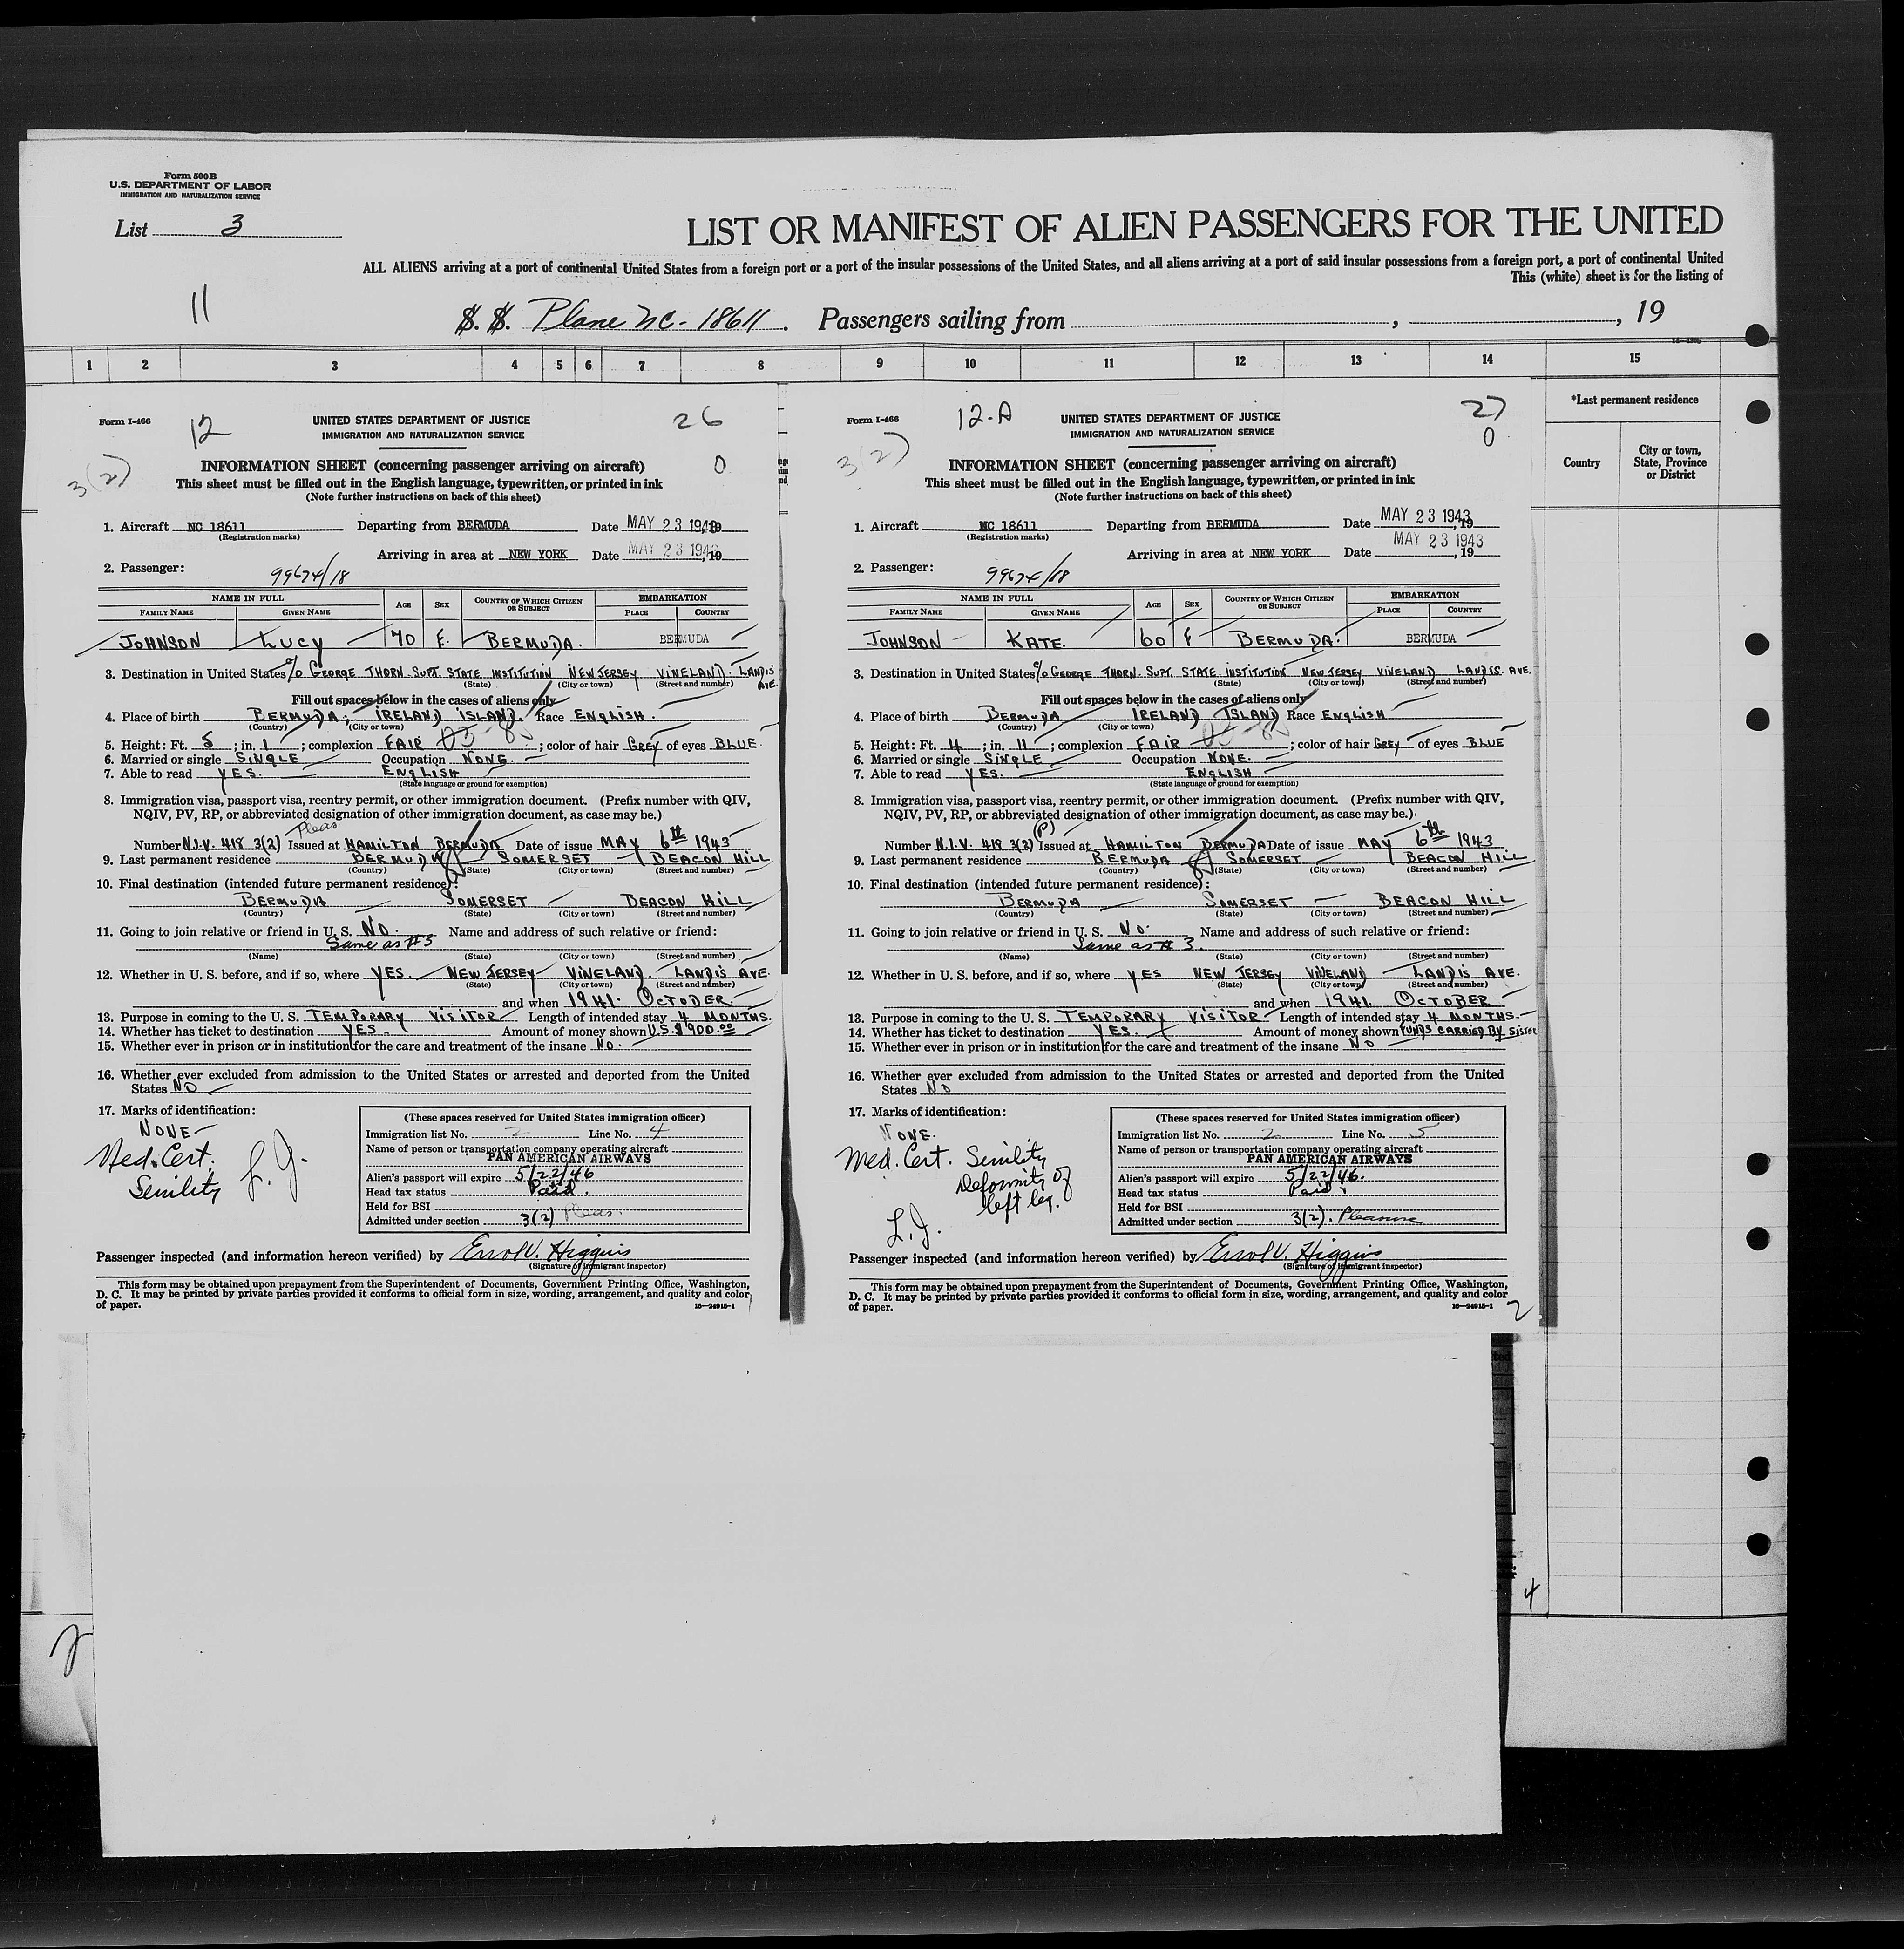 Form 500B
U.S. DEPARTMENT OF LABOR
IMMIGRATION AND NATURALIZATION SERVICE
List 3
LIST OR MANIFEST OF ALIEN PASSENGERS FOR THE UNITED
ALL ALIENS arriving at a port of continental United States from a foreign port or a port of the insular possessions of the United States, and all aliens arriving at a port of said insular possessions from a foreign port, a port of continental United
This (white) sheet is for the listing of
11
S. S. Plane NC-18611. Passengers sailing from , , 19
1 2 3 4 5 6 7 8 9 10 11 12 13 14 15
*Last permanent residence
Country
City or town, State, Province or District
Form I-466
12
UNITED STATES DEPARTMENT OF JUSTICE
26
IMMIGRATION AND NATURALIZATION SERVICE
3(2)
INFORMATION SHEET (concerning passenger arriving on aircraft)
0
This sheet must be filled out in the English language, typewritten, or printed in ink
(Note further instructions on back of this sheet)
1. Aircraft NC 18611 Departing from BERMUDA Date MAY 23 1943, 19
(Registration marks)
Arriving in area at NEW YORK Date MAY 23 1943, 19
2. Passenger: 99674/18
NAME IN FULL AGE SEX COUNTRY OF WHICH CITIZEN OR SUBJECT EMBARKATION
FAMILY NAME GIVEN NAME PLACE COUNTRY
JOHNSON LUCY 70 F. BERMUDA. BERMUDA
3. Destination in United States c/o GEORGE THORN. SUPT. STATE INSTITUTION NEW JERSEY VINELAND LANDIS AVE.
(State) (City or town) (Street and number)
Fill out spaces below in the cases of aliens only
4. Place of birth BERMUDA; IRELAND ISLAND. Race ENGLISH.
(Country) (City or town)
5. Height: Ft. 5; in. 1; complexion FAIR; color of hair GREY of eyes BLUE.
6. Married or single SINGLE Occupation NONE.
7. Able to read YES. ENGLISH
(State language or ground for exemption)
8. Immigration visa, passport visa, reentry permit, or other immigration document. (Prefix number with QIV,
NQIV, PV, RP, or abbreviated designation of other immigration document, as case may be.)
Pleas.
Number N.I.V. 418 3(2) Issued at HAMILTON BERMUDA Date of issue MAY 6th 1943
9. Last permanent residence BERMUDA SOMERSET BEACON HILL
(Country) (State) (City or town) (Street and number)
10. Final destination (intended future permanent residence):
BERMUDA SOMERSET BEACON HILL
(Country) (State) (City or town) (Street and number)
11. Going to join relative or friend in U. S. NO. Name and address of such relative or friend:
Same as #3
(Name) (State) (City or town) (Street and number)
12. Whether in U. S. before, and if so, where YES. NEW JERSEY VINELAND. LANDIS AVE.
(State) (City or town) (Street and number)
and when 1941. OCTOBER
13. Purpose in coming to the U. S. TEMPORARY VISITOR Length of intended stay 4 MONTHS.
14. Whether has ticket to destination YES. Amount of money shown U.S.$900.00
15. Whether ever in prison or in institution for the care and treatment of the insane NO.
16. Whether ever excluded from admission to the United States or arrested and deported from the United
States NO
17. Marks of identification:
NONE
Med. Cert. Senility
L.J.
(These spaces reserved for United States immigration officer)
Immigration list No. 2 Line No. 4
Name of person or transportation company operating aircraft
PAN AMERICAN AIRWAYS
Alien's passport will expire 5/22/46
Head tax status Paid.
Held for BSI
Admitted under section 3(2) Pleas.
Passenger inspected (and information hereon verified) by Errol V. Higgins
(Signature of immigrant inspector)
This form may be obtained upon prepayment from the Superintendent of Documents, Government Printing Office, Washington,
D. C. It may be printed by private parties provided it conforms to official form in size, wording, arrangement, and quality and color
of paper. 16—24915-1
Form I-466
12-A
UNITED STATES DEPARTMENT OF JUSTICE
27
IMMIGRATION AND NATURALIZATION SERVICE
0
3(2)
INFORMATION SHEET (concerning passenger arriving on aircraft)
This sheet must be filled out in the English language, typewritten, or printed in ink
(Note further instructions on back of this sheet)
1. Aircraft NC 18611 Departing from BERMUDA Date MAY 23 1943, 19
(Registration marks)
Arriving in area at NEW YORK Date MAY 23 1943, 19
2. Passenger: 99674/18
NAME IN FULL AGE SEX COUNTRY OF WHICH CITIZEN OR SUBJECT EMBARKATION
FAMILY NAME GIVEN NAME PLACE COUNTRY
JOHNSON KATE. 60 F BERMUDA. BERMUDA
3. Destination in United States c/o GEORGE THORN. SUPT. STATE INSTITUTION NEW JERSEY VINELAND LANDIS. AVE.
(State) (City or town) (Street and number)
Fill out spaces below in the cases of aliens only
4. Place of birth BERMUDA IRELAND ISLAND Race ENGLISH
(Country) (City or town)
5. Height: Ft. 4; in. 11; complexion FAIR; color of hair GREY of eyes BLUE
6. Married or single SINGLE Occupation NONE.
7. Able to read YES. ENGLISH
(State language or ground for exemption)
8. Immigration visa, passport visa, reentry permit, or other immigration document. (Prefix number with QIV,
NQIV, PV, RP, or abbreviated designation of other immigration document, as case may be.)
(P)
Number N.I.V. 419 3(2) Issued at HAMILTON BERMUDA Date of issue MAY 6th 1943
9. Last permanent residence BERMUDA SOMERSET BEACON HILL
(Country) (State) (City or town) (Street and number)
10. Final destination (intended future permanent residence):
BERMUDA SOMERSET BEACON HILL
(Country) (State) (City or town) (Street and number)
11. Going to join relative or friend in U. S. NO. Name and address of such relative or friend:
Same as # 3.
(Name) (State) (City or town) (Street and number)
12. Whether in U. S. before, and if so, where YES NEW JERSEY VINELAND LANDIS AVE.
(State) (City or town) (Street and number)
and when 1941. OCTOBER
13. Purpose in coming to the U. S. TEMPORARY VISITOR Length of intended stay 4 MONTHS.
14. Whether has ticket to destination YES. Amount of money shown FUNDS CARRIED BY SISTER
15. Whether ever in prison or in institution for the care and treatment of the insane NO
16. Whether ever excluded from admission to the United States or arrested and deported from the United
States NO
17. Marks of identification:
NONE.
Med. Cert. Senility
Deformity of
left leg.
L.J.
(These spaces reserved for United States immigration officer)
Immigration list No. 2 Line No. 5
Name of person or transportation company operating aircraft
PAN AMERICAN AIRWAYS
Alien's passport will expire 5/22/46.
Head tax status Paid.
Held for BSI
Admitted under section 3(2). Pleasure
Passenger inspected (and information hereon verified) by Errol V. Higgins
(Signature of immigrant inspector)
This form may be obtained upon prepayment from the Superintendent of Documents, Government Printing Office, Washington,
D. C. It may be printed by private parties provided it conforms to official form in size, wording, arrangement, and quality and color
of paper. 16—24915-1
2
4